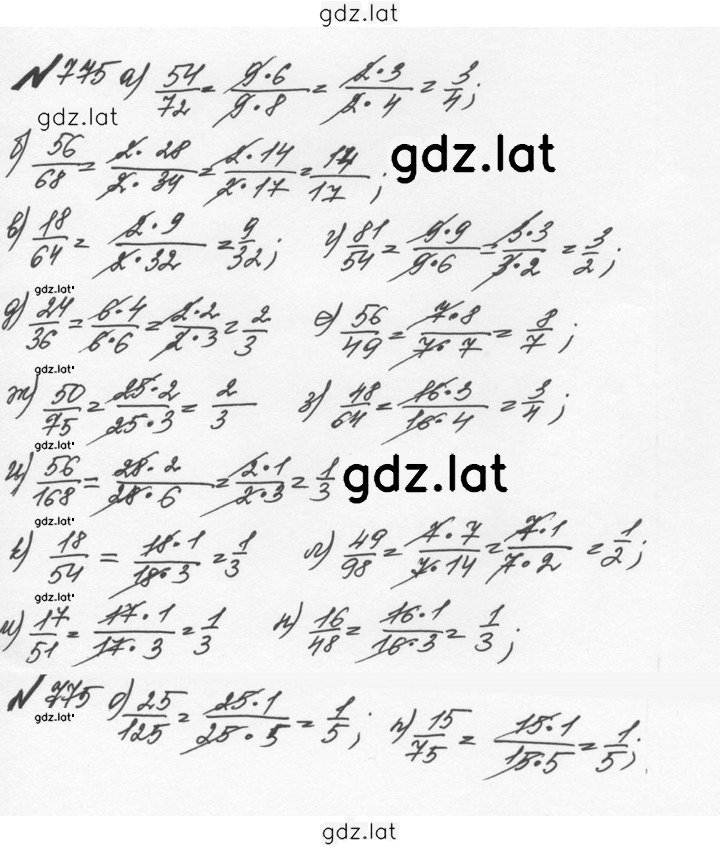 gdz.lat
№ 775 а) 54/72 = 9·6/9·8 = 2·3/2·4 = 3/4;
gdz.lat
б) 56/68 = 2·28/2·34 = 2·14/2·17 = 14/17;
gdz.lat
в) 18/64 = 2·9/2·32 = 9/32; г) 81/54 = 9·9/9·6 = 3·3/3·2 = 3/2;
gdz.lat
д) 24/36 = 6·4/6·6 = 2·2/2·3 = 2/3 е) 56/49 = 7·8/7·7 = 8/7;
gdz.lat
ж) 50/75 = 25·2/25·3 = 2/3 з) 48/64 = 16·3/16·4 = 3/4;
gdz.lat
и) 56/168 = 28·2/28·6 = 2·1/2·3 = 1/3
gdz.lat
gdz.lat
к) 18/54 = 18·1/18·3 = 1/3 л) 49/98 = 7·7/7·14 = 7·1/7·2 = 1/2;
gdz.lat
м) 17/51 = 17·1/17·3 = 1/3 н) 16/48 = 16·1/16·3 = 1/3;
№ 775 о) 25/125 = 25·1/25·5 = 1/5; п) 15/75 = 15·1/15·5 = 1/5;
gdz.lat
gdz.lat